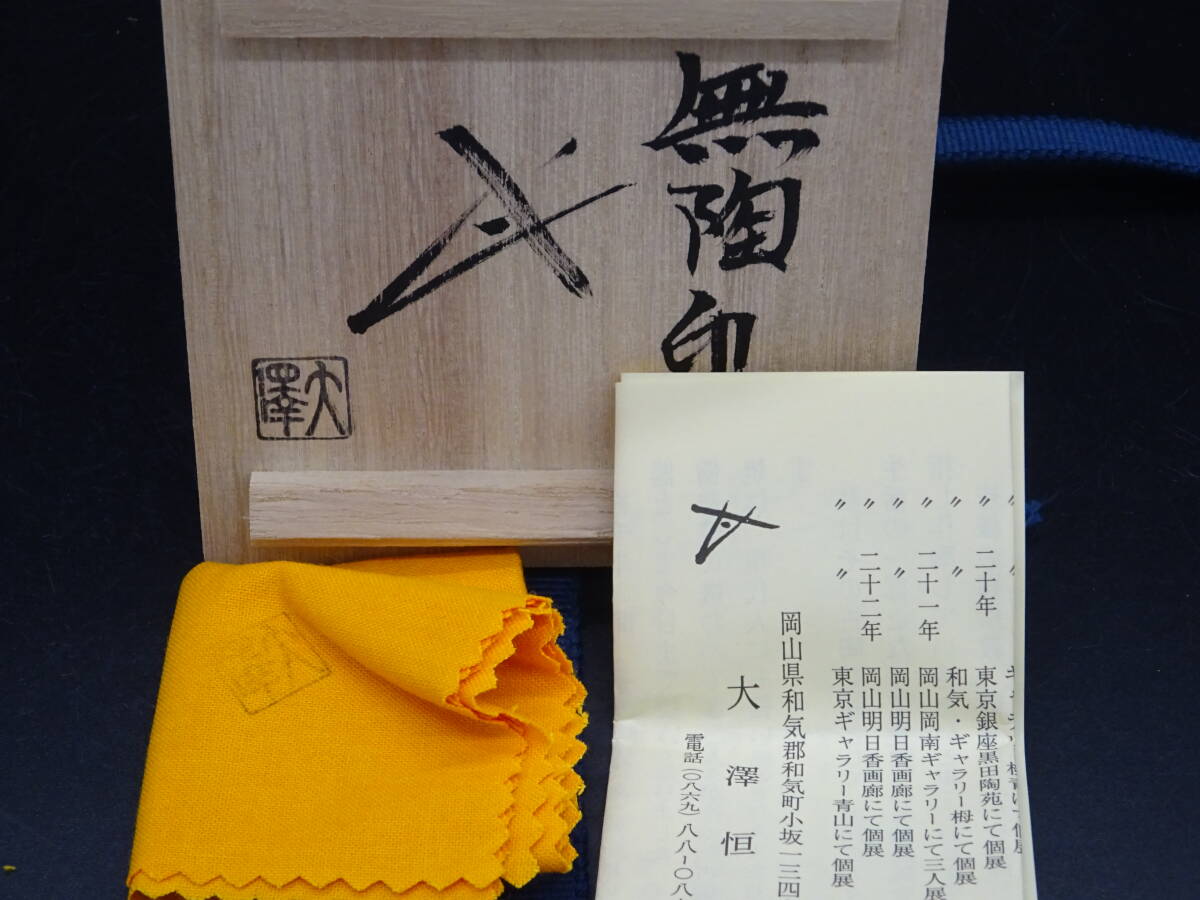 無陶印
大澤
大澤
〃 〃 ギャラリー
〃 二十年 東京銀座黒田陶苑にて個展
〃 〃 和気・ギャラリー栂にて個展
〃 二十一年 岡山岡南ギャラリーにて三人展
〃 〃 岡山明日香画廊にて個展
〃 二十二年 岡山明日香画廊にて個展
〃 〃 東京ギャラリー青山にて個展
岡山県和気郡和気町小坂一三四
大澤恒
電話(〇八六九)八八-〇八